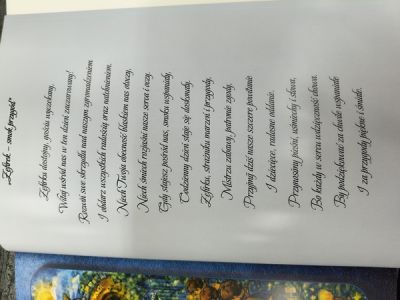 Zefirek – smok przygód"
Zefirku dostojny, gościu wyczekany,
Witaj wśród nas w ten dzień zaczarowany!
Rozwiń swe skrzydła nad naszym zgromadzeniem
I obdarz wszystkich radością oraz natchnieniem.
Niech Twoja obecność blaskiem nas otoczy,
Niech śmiech rozjaśni nasze serca i oczy.
Gdy stajesz pośród nas, smoku wspaniały,
Codzienny dzień staje się doskonały.
Zefirku, strażniku marzeń i przygody,
Mistrzu zabawy, patronie zgody,
Przyjmij dziś nasze szczere powitanie
I dziecięce, radosne oddanie.
Przynosimy pieśni, uśmiechy i słowa,
Bo każdy w sercu wdzięczność chowa.
By podziękować za chwile wspaniałe
I za przygody piękne i śmiałe.